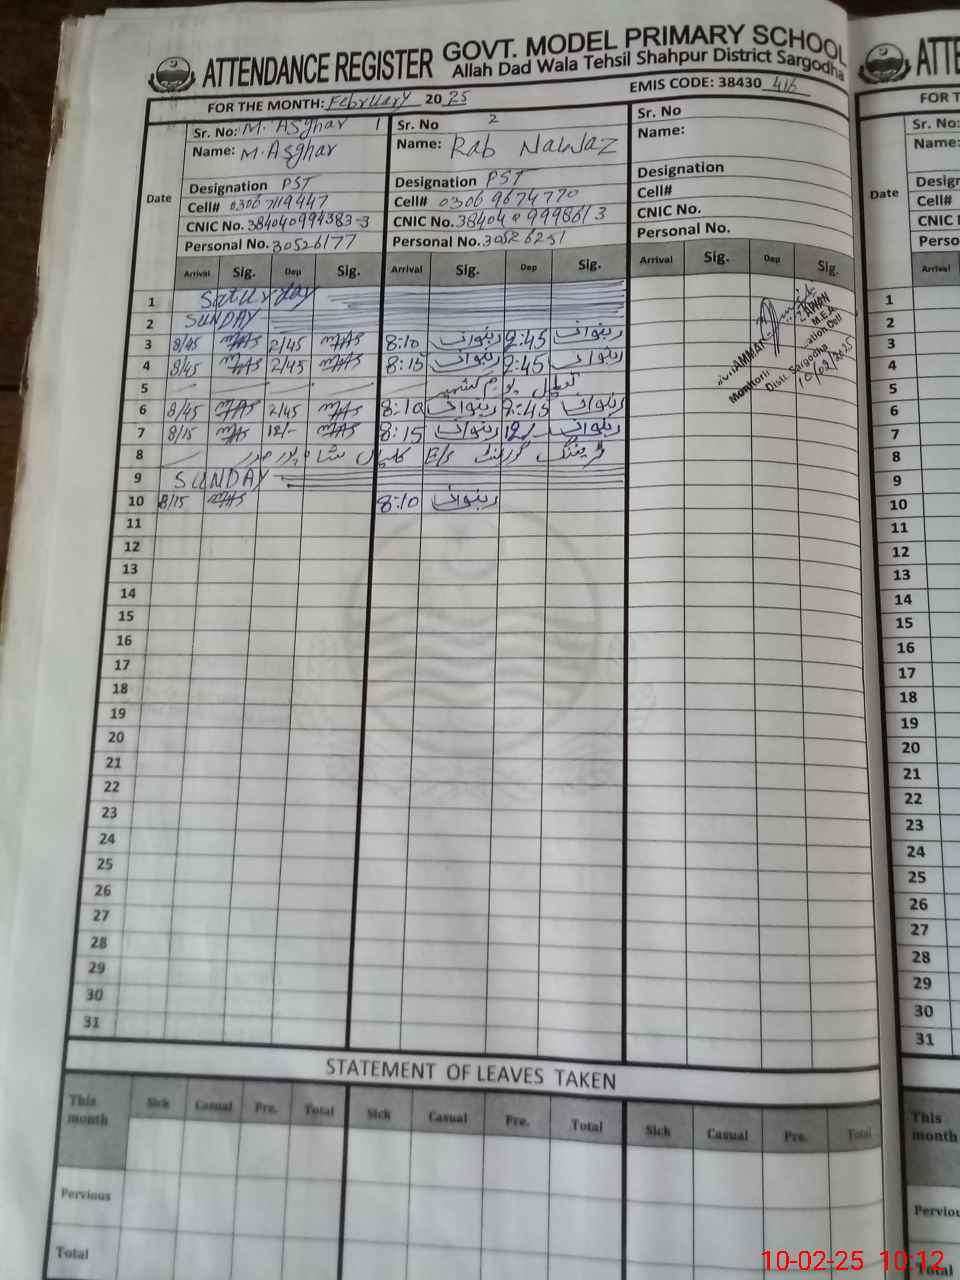 ATTENDANCE REGISTER GOVT. MODEL PRIMARY SCHOOL
Allah Dad Wala Tehsil Shahpur District Sargodha
FOR THE MONTH: February 2025 EMIS CODE: 38430 416
Sr. No: M. Asghar 1 Sr. No 2 Sr. No
Name: M. Asghar Name: Rab Nawaz Name:
Designation PST Designation PST Designation
Cell# 03067119447 Cell# 03069674770 Cell#
CNIC No. 384040994383-3 CNIC No. 38404 CNIC No.
Personal No. 30526177 Personal No. 30526251 Personal No.
Date Arrival Sig. Dep Sig. Arrival Sig. Dep Sig. Arrival Sig. Dep Sig.
1 Saturday
2 SUNDAY
3 8/45 2/45 8:10 رینواز 2:45 رینواز
4 8/45 2/45 8:15 رینواز 2:45 رینواز
5 تعطیل یوم کشمیر
6 8/45 2/45 8:10 رینواز 2:45 رینواز
7 8/15 12/- 8:15 رینواز 12/ رینواز
8
9 SUNDAY
10 8/15 8:10 رینواز
11
12
13
14
15
16
17
18
19
20
21
22
23
24
25
26
27
28
29
30
31
AMMAR
M.E.A
Distt. Sargodha
10/02/2025
STATEMENT OF LEAVES TAKEN
This month Sick Casual Pre. Total Sick Casual Pre. Total Sick Casual Pre. Total
Pervious
Total
ATTE
FOR T
Sr. No:
Name:
Date
Cell#
Arrival
1
2
3
4
5
6
7
8
9
10
11
12
13
14
15
16
17
18
19
20
21
22
23
24
25
26
27
28
29
30
31
This month
Total
10-02-25 10:12